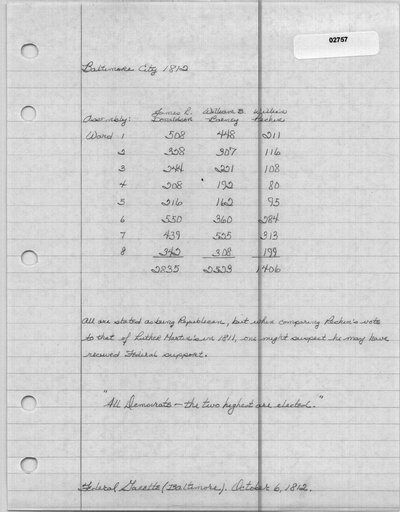 02757
Baltimore City 1812
James L. William B. William
Assembly: Donaldson Barney Pechin
Ward 1 508 448 211
2 328 307 116
3 244 221 108
4 208 192 80
5 216 162 95
6 550 360 284
7 439 525 313
8 342 308 199
2835 2523 1406
All are stated as being Republican, but when comparing Pechin's vote
to that of Luther Martin's in 1811, one might suspect he may have
received Federal support.
"All Democrats - the two highest are elected."
Federal Gazette (Baltimore). October 6, 1812.